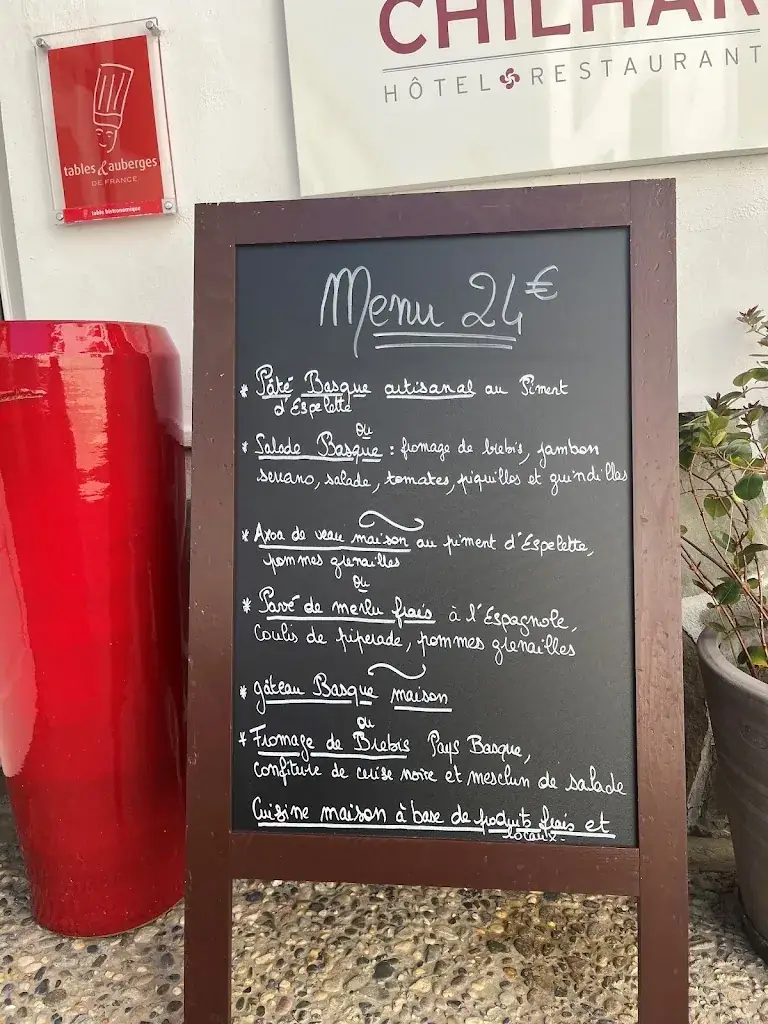 CHILHAR
HÔTEL RESTAURANT
tables & auberges
DE FRANCE
table bistronomique
Menu 24€
* Pâté Basque artisanal au Piment
d'Espelette
ou
* Salade Basque : fromage de brebis, jambon
serrano, salade, tomates, piquilles et guindillas
* Axoa de veau maison au piment d'Espelette,
pommes grenailles
ou
* Pavé de merlu frais à l'Espagnole,
Coulis de piperade, pommes grenailles
* gâteau Basque maison
ou
* Fromage de Brebis Pays Basque,
confiture de cerise noire et mesclun de salade
Cuisine maison à base de produits frais et
locaux.